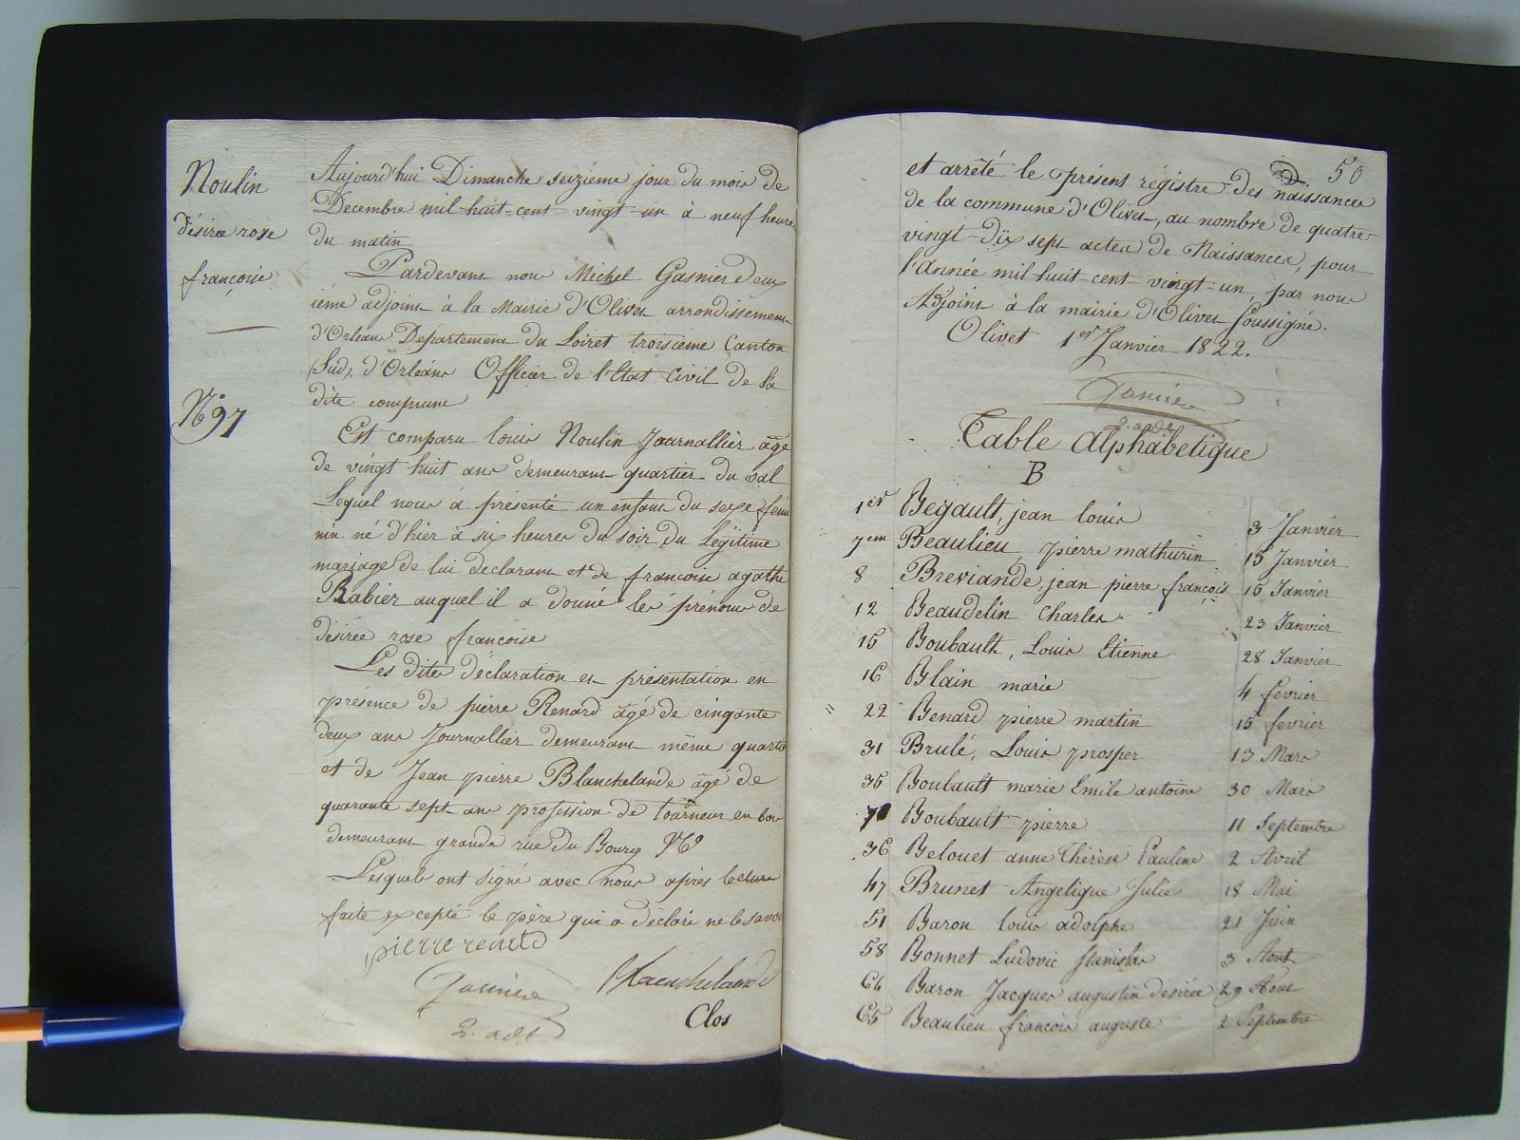 Noulin
désirée rose
françoise
N° 97
Aujourd'hui Dimanche seizième jour du mois de
Decembre mil-huit-cent vingt-un à neuf heures
du matin
Pardevant nous Michel Gasnier deux
ième adjoint à la Mairie d'Olivet arrondissement
d'Orléans Departement du Loiret troisième Canton
(Sud) d'Orléans Officier de l'Etat Civil de la
dite commune
Est comparu louis Noulin Journallier âgé
de vingt huit ans demeurant quartier du val
Lequel nous a présenté un enfant du sexe fémi
nin né d'hier à six heures du soir du légitime
mariage de lui déclarant et de françoise agathe
Rabier auquel il a donné les prénoms de
désirée rose françoise
Les dites déclaration et présentation en
présence de pierre Renard âgé de cinquante
deux ans Journallier demeurant même quartier
et de Jean pierre Blanchelande âgé de
quarante sept ans profession de tourneur en bois
demeurant grande rue du Bourg
Lesquels ont signé avec nous après lecture
faite excepté le père qui a déclaré ne le savoir
pierre renard
Blanchelande
Gasnier
2. adt
Clos
50
et arrêté le présent régistre des naissances
de la commune d'Olivet, au nombre de quatre
vingt-dix sept actes de Naissances, pour
l'Année mil-huit-cent vingt-un, par nous
Adjoint à la mairie d'Olivet soussigné.
Olivet 1er Janvier 1822.
Gasnier
2. adt
Table Alphabetique
B
1er Begault, jean louis 3 Janvier
7em Beaulieu pierre mathurin 15 Janvier
8 Breviande jean pierre françois 16 Janvier
12 Beaudelin Charles 23 Janvier
15 Boubault, Louis Etienne 28 Janvier
16 Blain marie 4 fevrier
22 Benard pierre martin 15 fevrier
31 Brulé, Louis prosper 13 Mars
35 Boubault marie Emile antoine 30 Mars
70 Boubault pierre 11 Septembre
36 Belouet anne Thérèse Pauline 2 Avril
47 Brunet Angelique Julie 18 Mai
51 Baron louis adolphe 21 Juin
58 Bonnet Ludovic Stanislas 3 Aout
64 Baron Jacques augustin desirée 29 Aout
65 Beaulieu françois auguste 2 Septembre